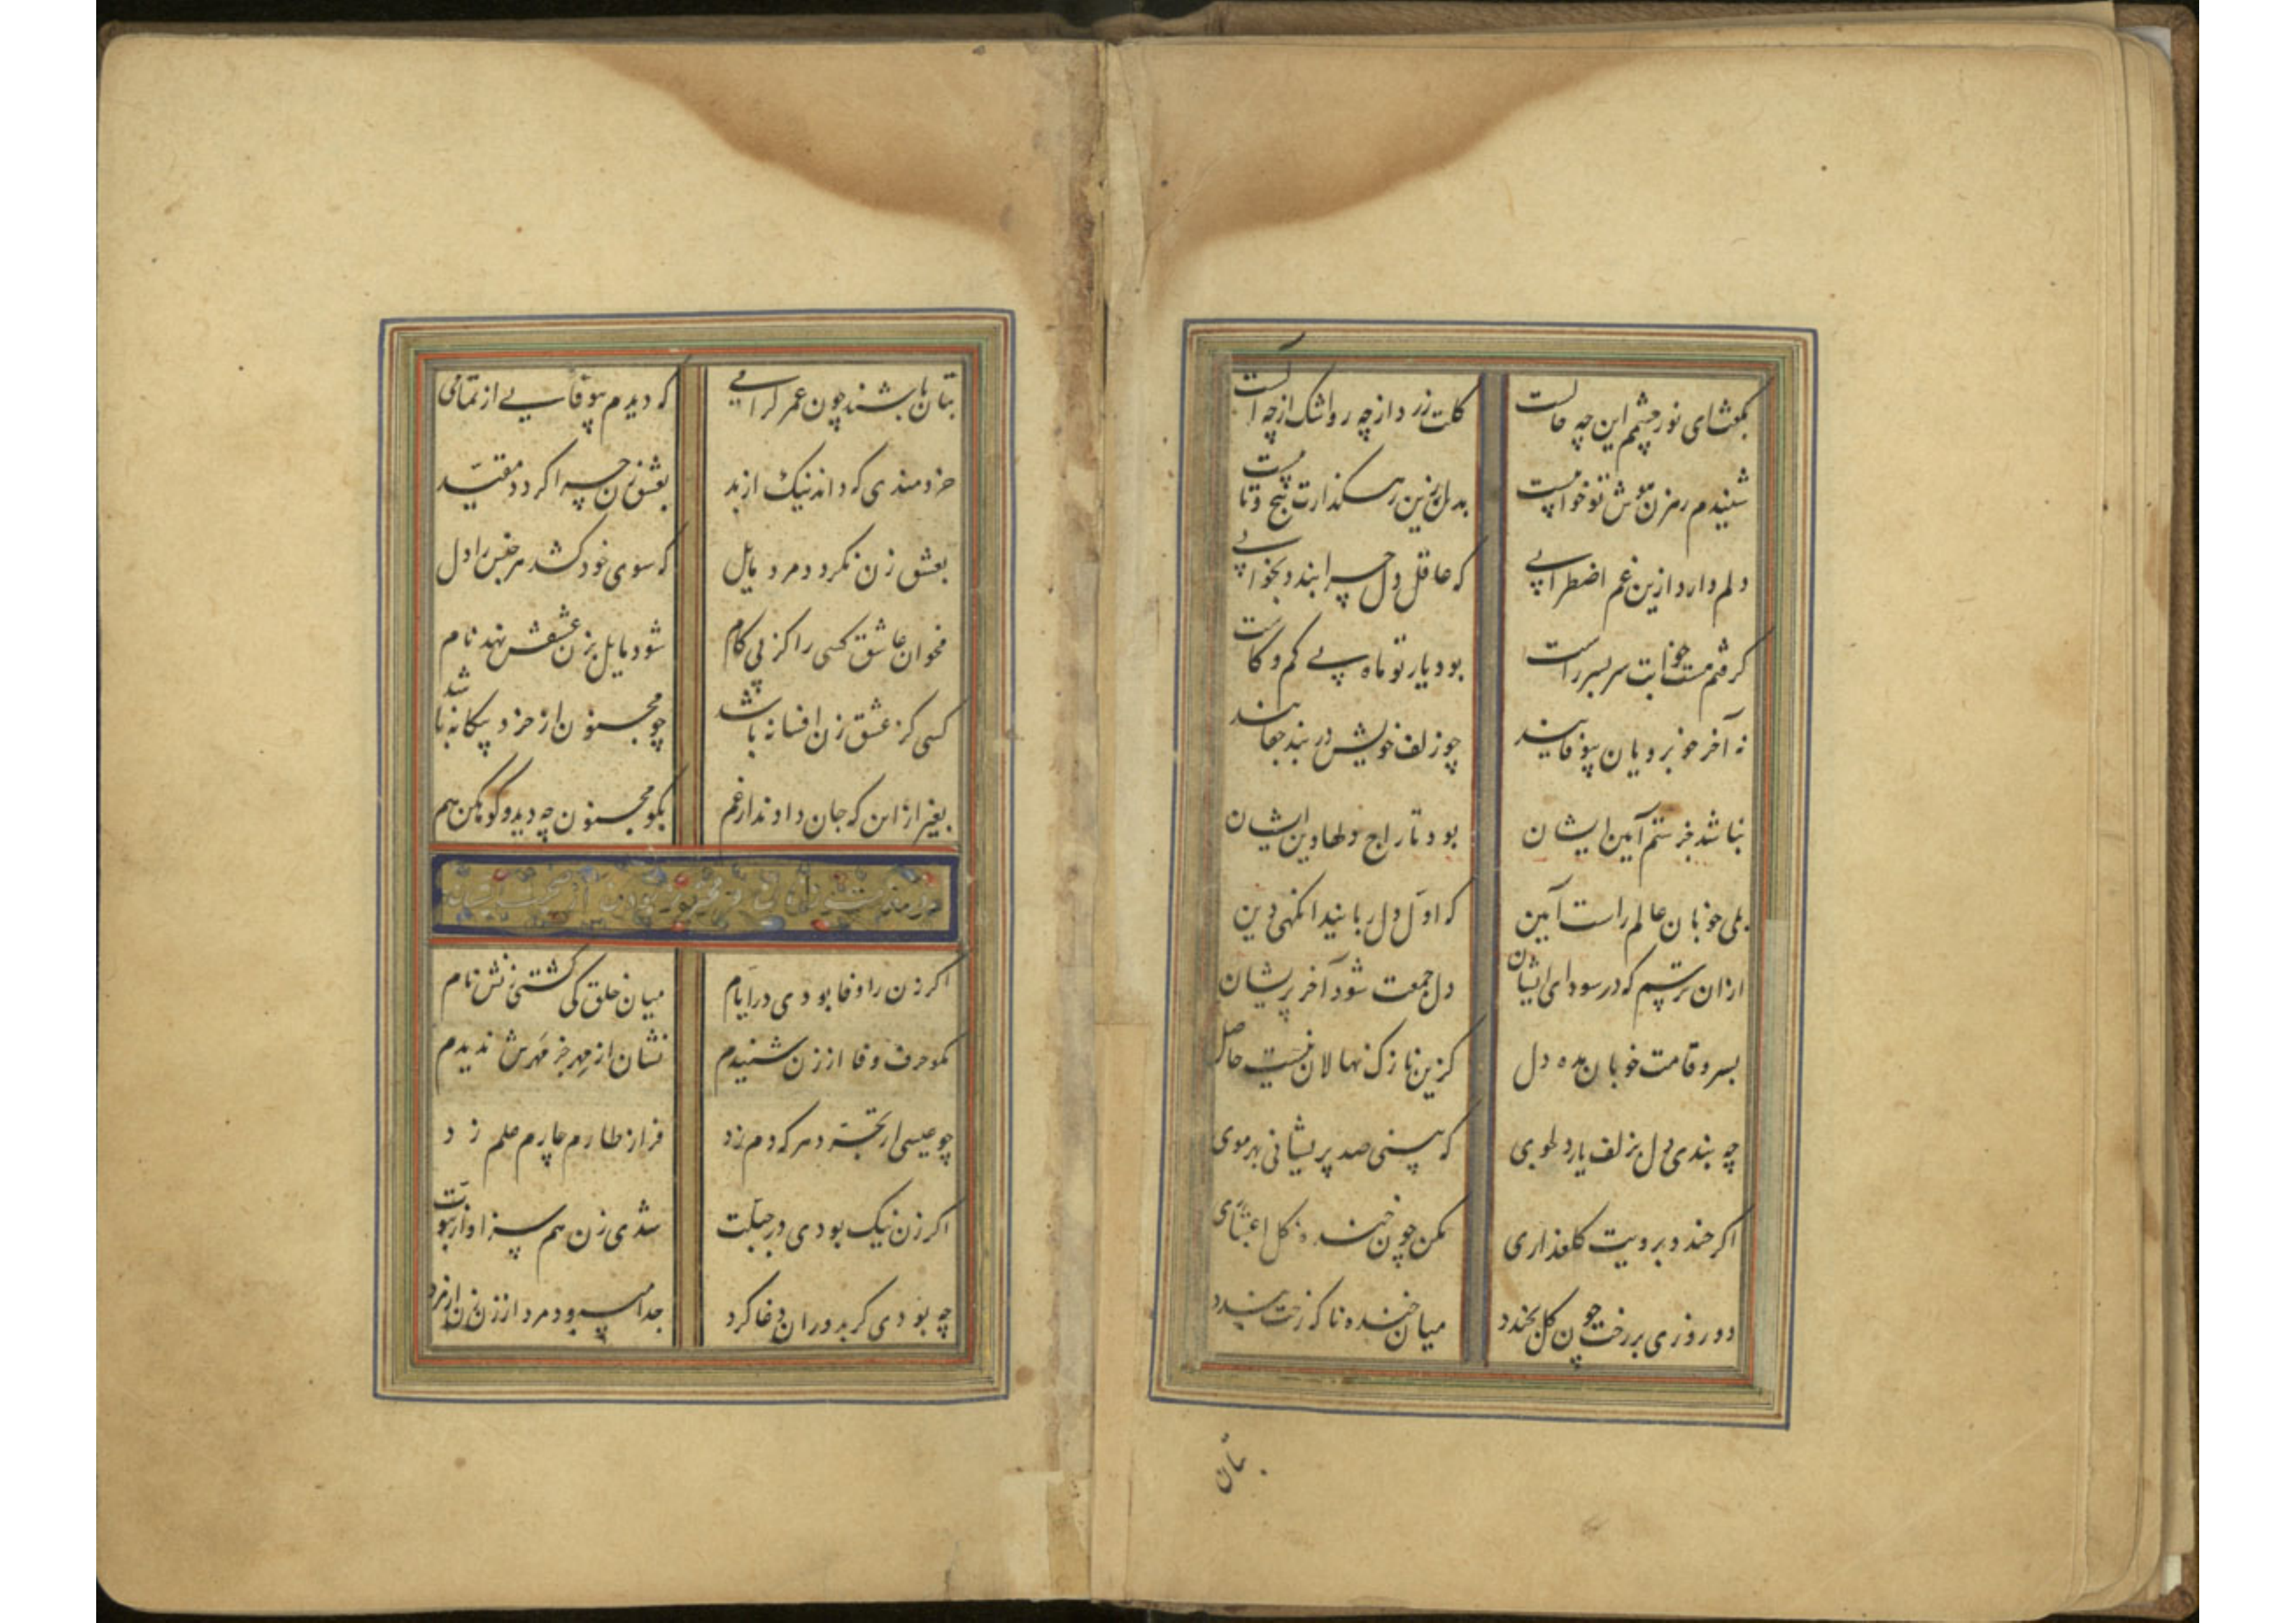 بگفتش ای نور چشمم این چه حالست
گلت زرد از چه رو اشک از چه آلست
شنیدم رهزن هوش تو خوابیست
بدل زین رهگذارت پیچ و تابیست
دلم دارد ازین غم اضطرابی
که عاقل دل چرا بندد بخوابی
گرفتم هست خوابت سربسر راست
بود یار تو ماه بی کم و کاست
نه آخر خوبرویان بیوفایند
چو زلف خویش در بند جفایند
نباشد جز ستم آیین ایشان
بود تاراج دلها دین ایشان
بلی خوبان عالم راست آیین
که اول دل ربایند آنگهی دین
ازان ترسم که در سودای ایشان
دل جمعت شود آخر پریشان
بسرو قامت خوبان مده دل
کزین نازک نهالان نیست حاصل
چه بندی دل بزلف یار دلجوی
که بینی صد پریشانی بهر موی
اگر خندد برویت گلعذاری
مکن چون خنده گل اعتباری
دو روزی بر رخت چون گل بخندد
میان خنده ناگه رخت بندد
بتان
بتان باشند چون عمر گرامی
که دیدم بیوفایی از تمامی
خردمندی که داند نیک از بد
بعشق زن چرا گردد مقید
بعشق زن نگردد مرد مایل
که سوی خود کشد هر جنس را دل
مخوان عاشق کسی را کز پی کام
شود مایل بزن عشقش نهد نام
کسی کز عشق زن افسانه باشد
چو مجنون از خرد بیگانه باشد
بغیر از این که جان دادند از غم
بگو مجنون چه دید و کوهکن هم
در مذمت زنان و
اگر زن را وفا بودی در ایام
میان خلق کی گشتی زنش نام
نکو حرف وفا از زن شنیدم
نشان از مهر جز مهرش ندیدم
چو عیسی از تجرد هر که دم زد
فراز طارم چارم علم زد
اگر زن نیک بودی در جبلت
شدی زن هم سزاوار نبوت
چه بودی گر بدوران دغا گرد
جدا میبود مرد از زن زن از مرد